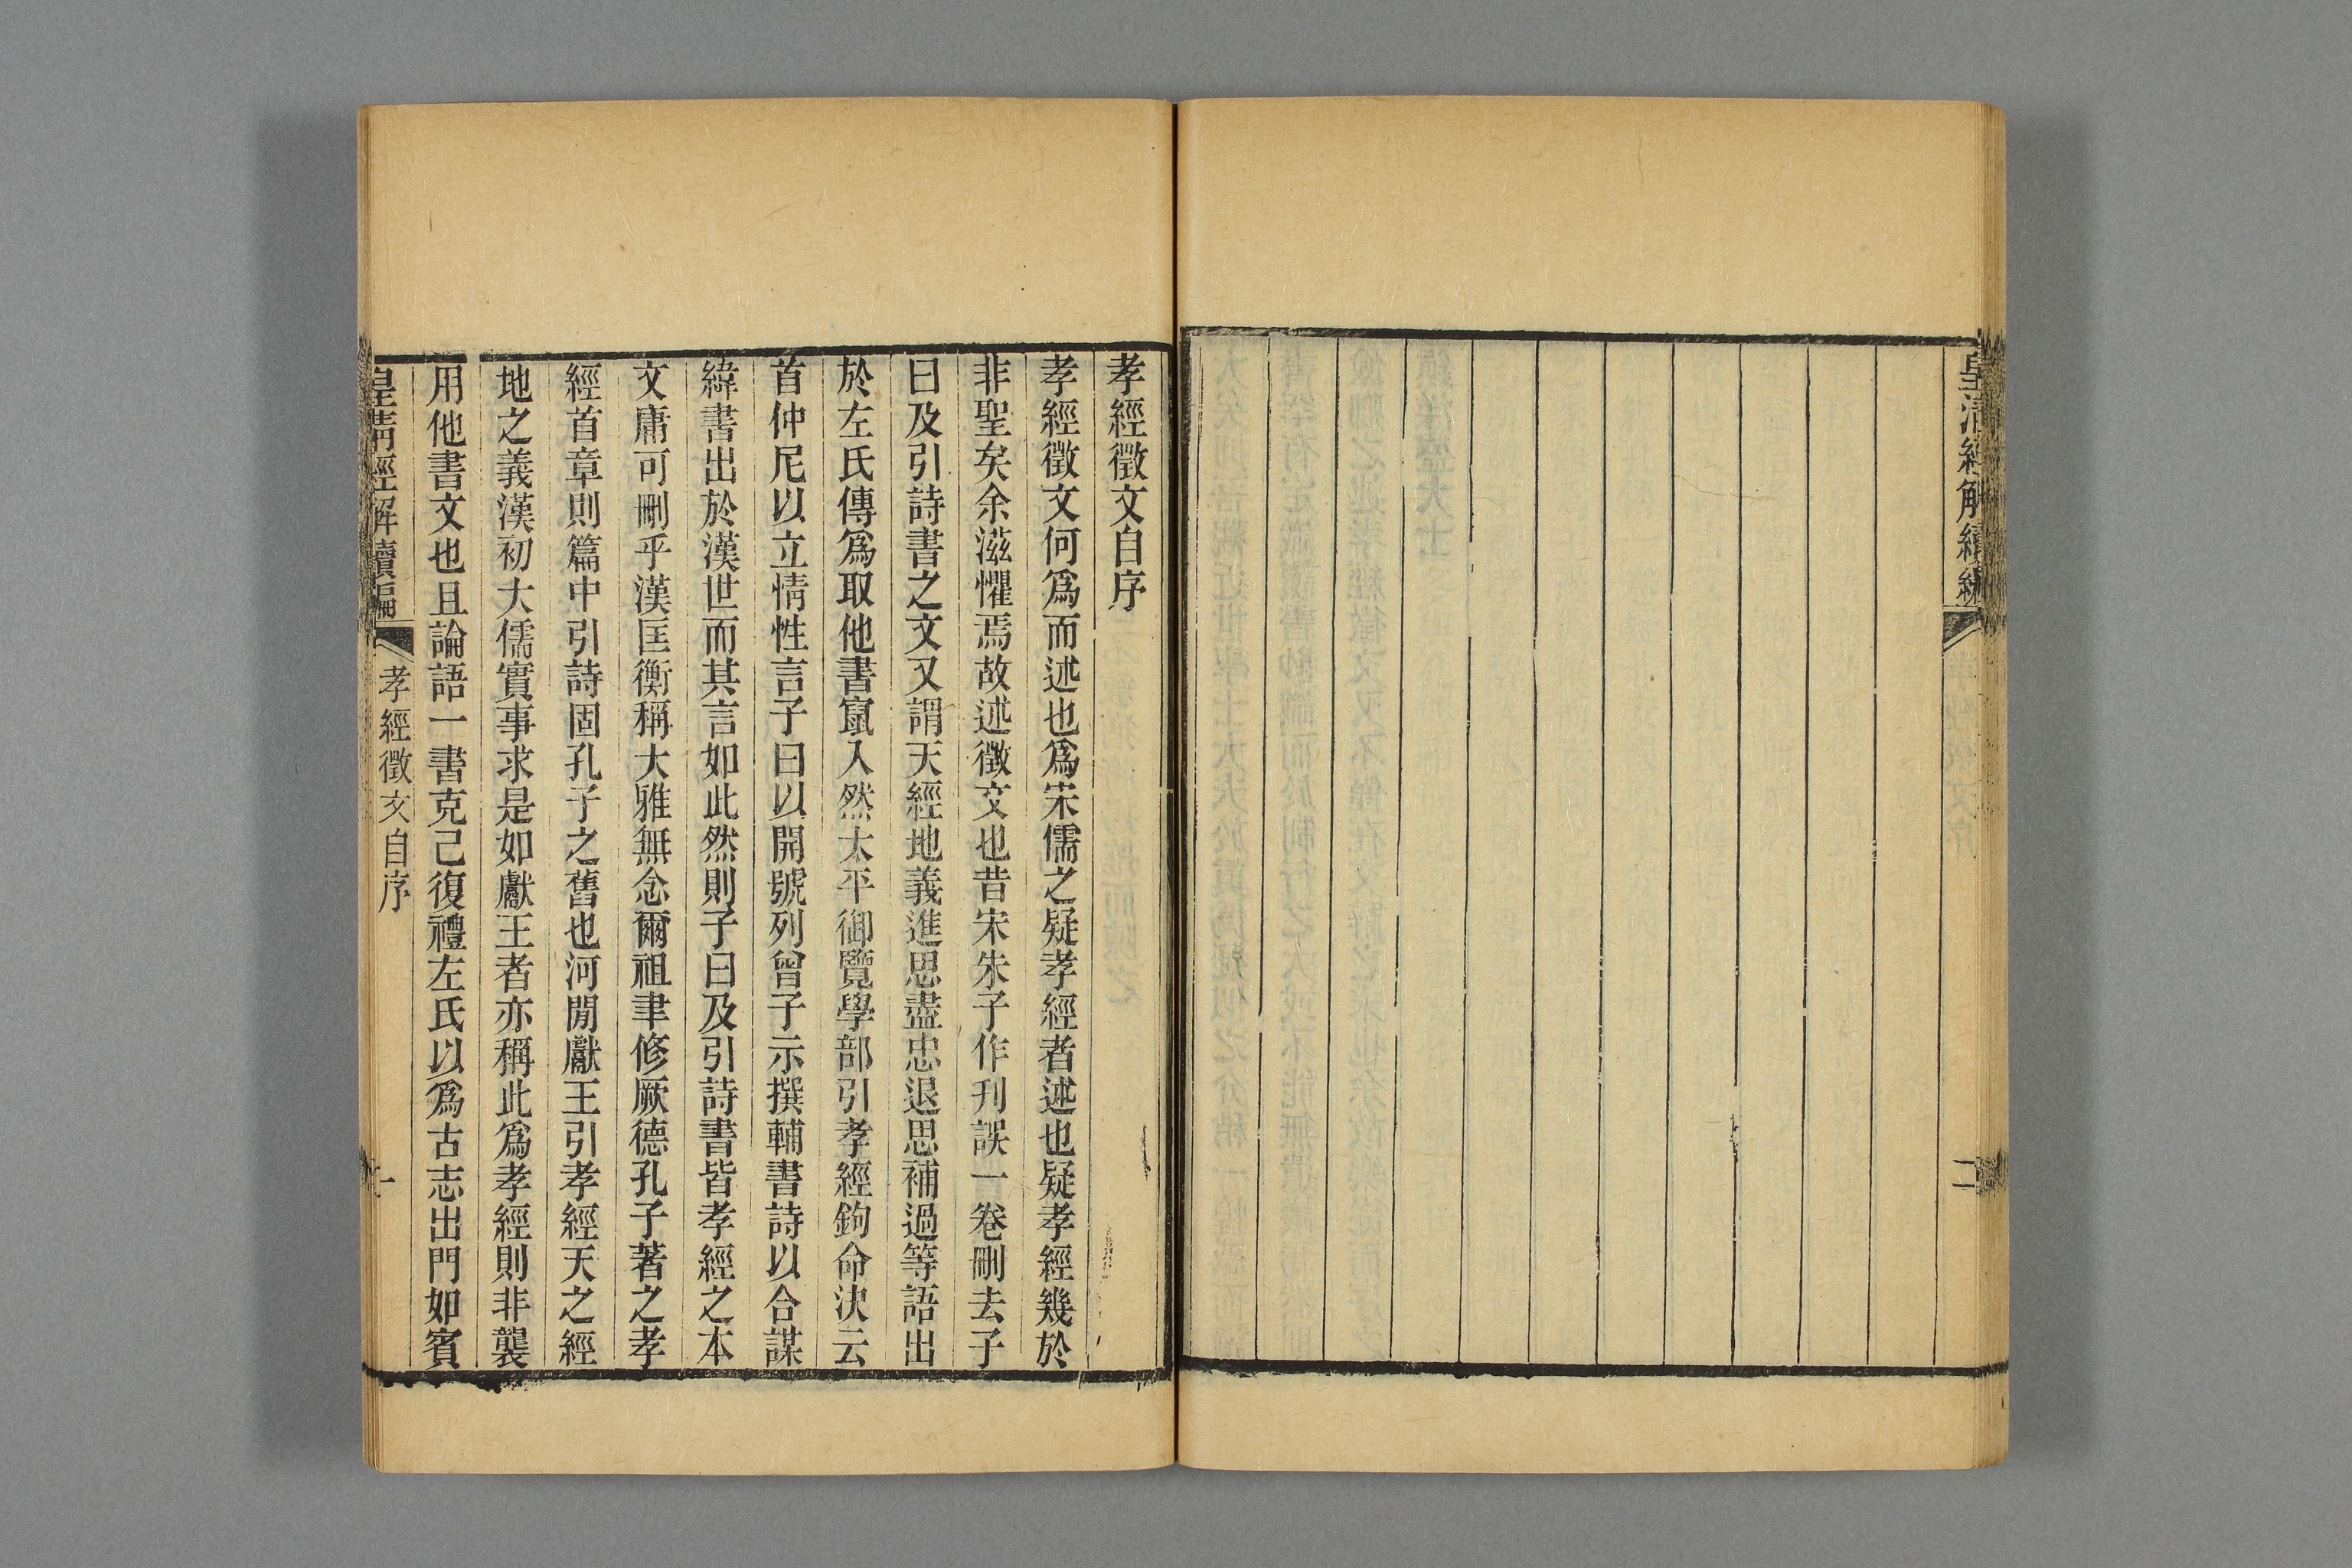 皇清經解續編
二
孝經徵文自序
孝經徵文何爲而述也爲宋儒之疑孝經者述也疑孝經幾於
非聖矣余滋懼焉故述徵文也昔宋朱子作刊誤一卷刪去子
曰及引詩書之文又謂天經地義進思盡忠退思補過等語出
於左氏傳爲取他書竄入然太平御覽學部引孝經鉤命決云
首仲尼以立情性言子曰以開號列曾子示撰輔書詩以合謀
緯書出於漢世而其言如此然則子曰及引詩書皆孝經之本
文庸可刪乎漢匡衡稱大雅無念爾祖聿修厥德孔子著之孝
經首章則篇中引詩固孔子之舊也河閒獻王引孝經天之經
地之義漢初大儒實事求是如獻王者亦稱此爲孝經則非襲
用他書文也且論語一書克己復禮左氏以爲古志出門如賓
皇清經解續編
孝經徵文自序
一